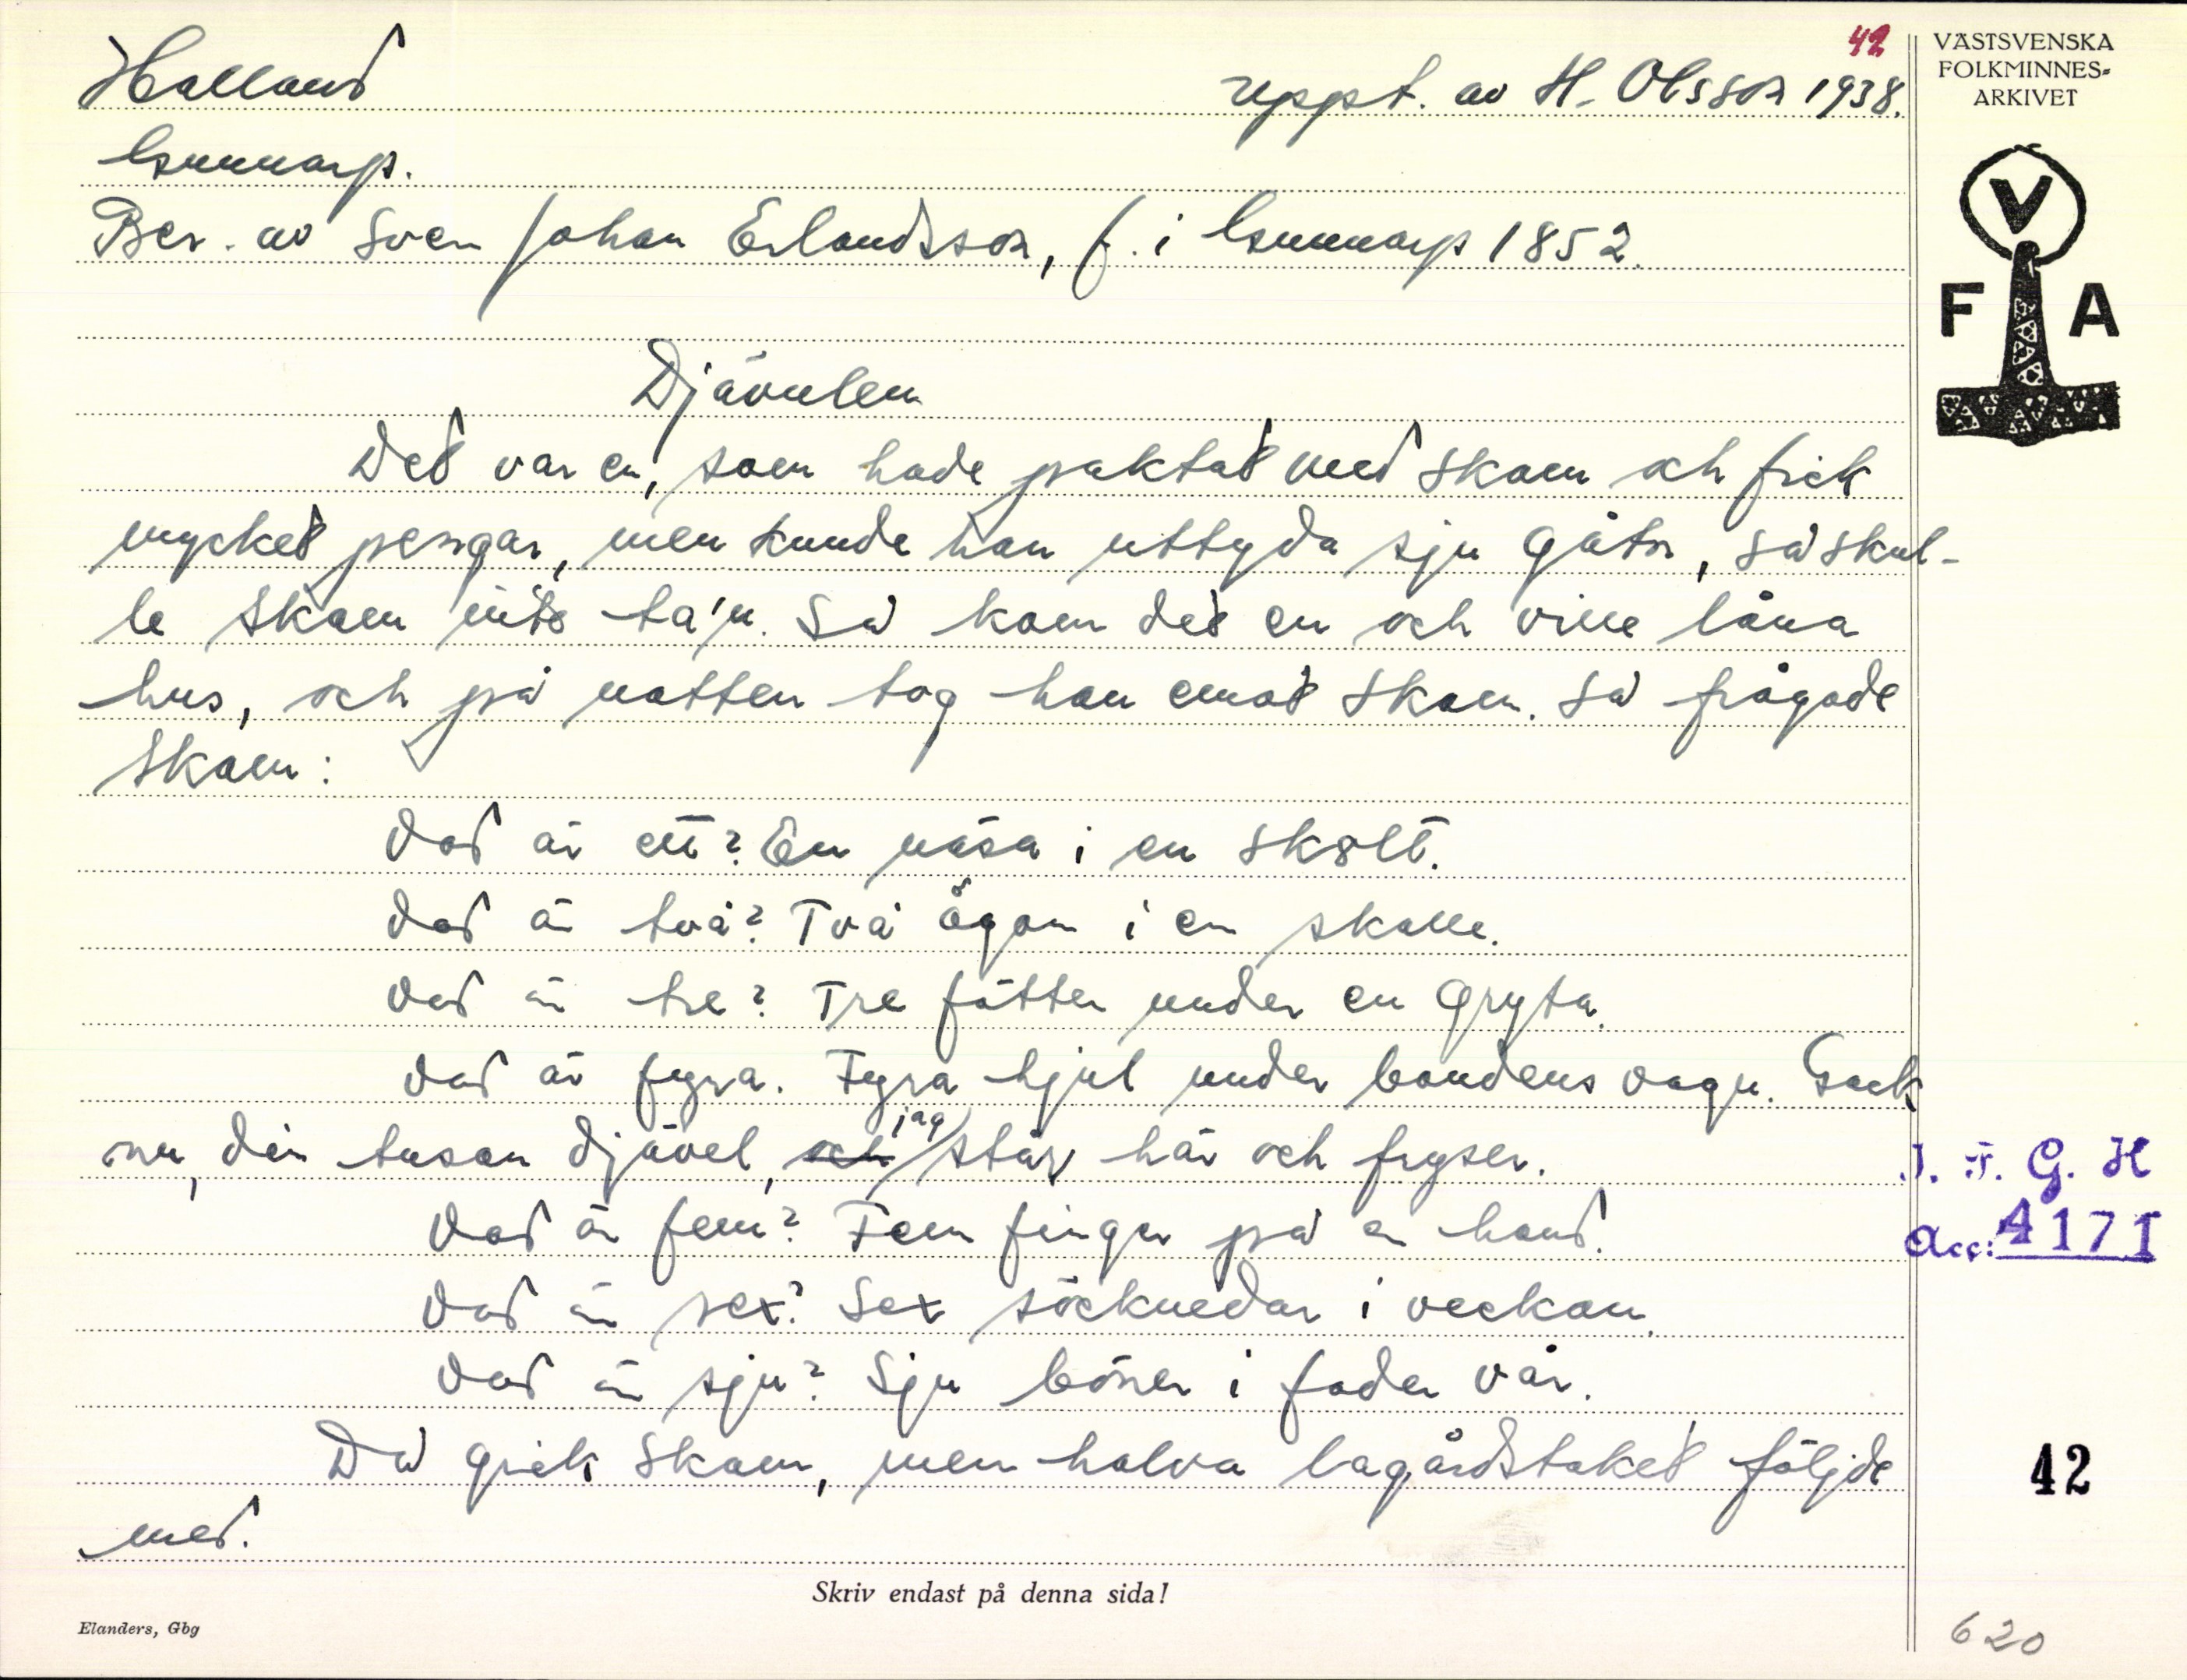 42
VÄSTSVENSKA
FOLKMINNES-
ARKIVET
Halland
uppt. av H. Olsson 1938.
Gunnarp.
Ber. av Sven Johan Erlandsson, f. i Gunnarp 1852.
V
F A
Djävulen
Det var en, som hade paktat med Skam och fick
mycket pengar, men kunde han uttyda sju gåtor, så skul-
le Skam inte ta'n. Så kom det en och ville låna
hus, och på natten tog han emot Skam. Så frågade
Skam:
Vad är ett? En näsa i en skalt.
Vad är två? Två ögon i en skalle.
Vad är tre? Tre fötter under en gryta.
Vad är fyra. Fyra hjul under bondens vagn. Gack
nu, din tusan djävel, och jag står här och fryser.
Vad är fem? Fem finger på en hand.
Vad är sex? Sex söcknedar i veckan.
Vad är sju? Sju böner i fader vår.
Då gick Skam, men halva lagårdstaket följde
med.
I. F. G. H
Acc: 4171
42
Skriv endast på denna sida!
Elanders, Gbg
620